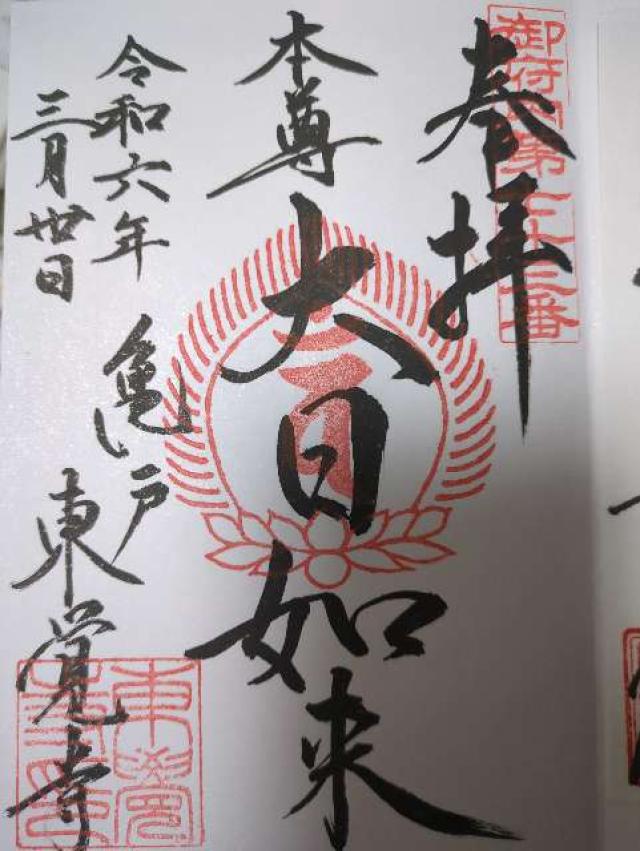 奉拝
御府内第七十三番
本尊
大日如来
令和六年
三月丗日
亀戸
東覚寺